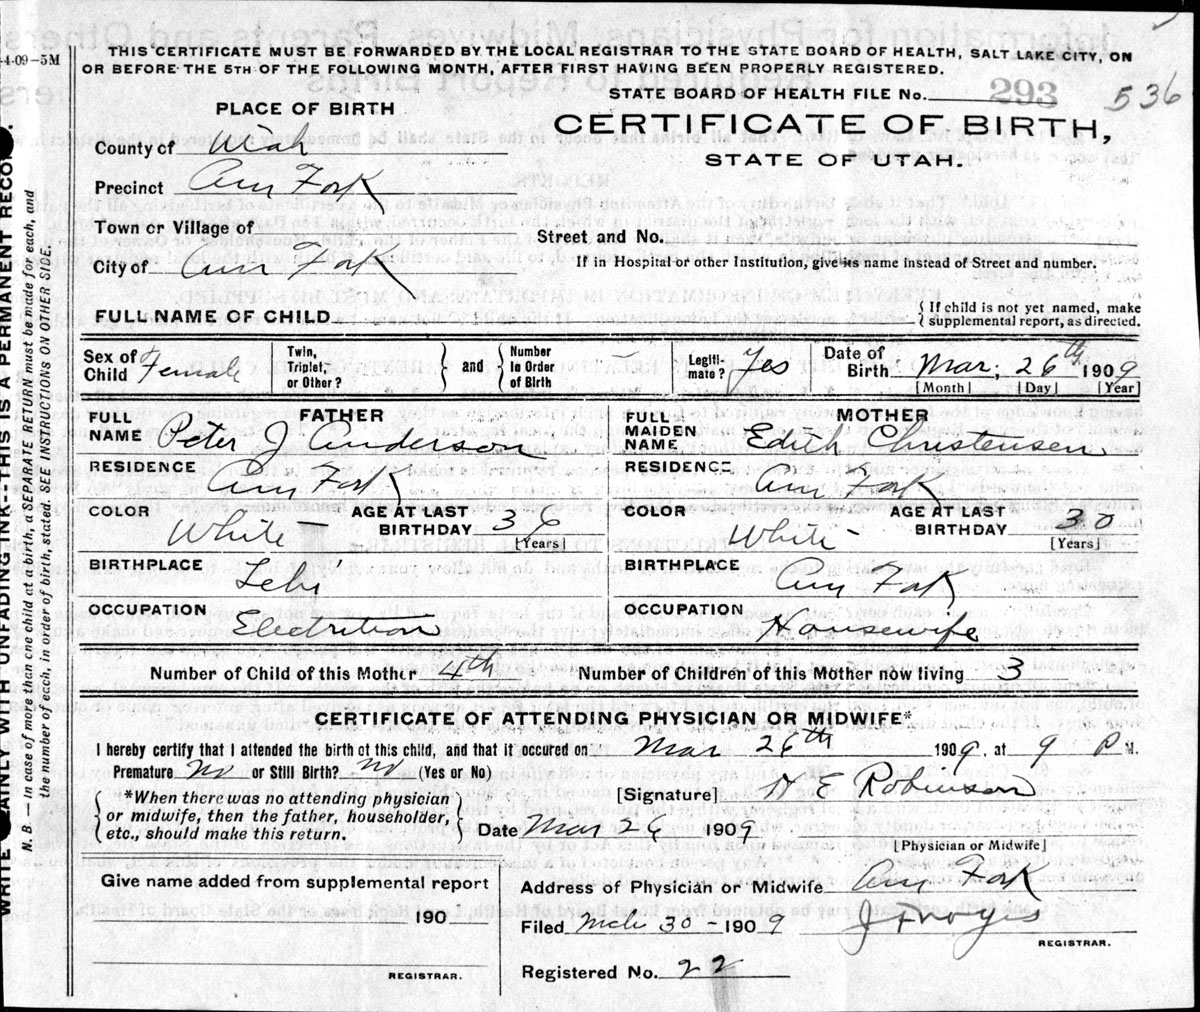 4-09-5M
THIS CERTIFICATE MUST BE FORWARDED BY THE LOCAL REGISTRAR TO THE STATE BOARD OF HEALTH, SALT LAKE CITY, ON
OR BEFORE THE 5TH OF THE FOLLOWING MONTH, AFTER FIRST HAVING BEEN PROPERLY REGISTERED.
STATE BOARD OF HEALTH FILE No. 293 536
PLACE OF BIRTH
CERTIFICATE OF BIRTH,
STATE OF UTAH.
County of Utah
Precinct Am Fork
Town or Village of
Street and No.
City of Am Fork
If in Hospital or other Institution, give its name instead of Street and number.
FULL NAME OF CHILD
If child is not yet named, make
supplemental report, as directed.
Sex of Child Female
Twin, Triplet, or Other?
and
Number in Order of Birth
Legitimate? Yes
Date of Birth Mar. 26th 1909
[Month] [Day] [Year]
FATHER
FULL NAME Peter J Anderson
RESIDENCE Am Fork
COLOR White
AGE AT LAST BIRTHDAY 36
[Years]
BIRTHPLACE Lehi
OCCUPATION Electrition
MOTHER
FULL MAIDEN NAME Edith Christensen
RESIDENCE Am Fork
COLOR White
AGE AT LAST BIRTHDAY 30
[Years]
BIRTHPLACE Am Fork
OCCUPATION Housewife
Number of Child of this Mother 4th Number of Children of this Mother now living 3
CERTIFICATE OF ATTENDING PHYSICIAN OR MIDWIFE*
I hereby certify that I attended the birth of this child, and that it occured on Mar 26th 1909, at 9 P M.
Premature No or Still Birth? No (Yes or No)
*When there was no attending physician
or midwife, then the father, householder,
etc., should make this return.
[Signature] E Robinson
Date Mar 26 1909
[Physician or Midwife]
Give name added from supplemental report
190
REGISTRAR.
Address of Physician or Midwife Am Fork
Filed Mch 30 - 1909
REGISTRAR.
Registered No. 22
N. B.—In case of more than one child at a birth, a SEPARATE RETURN must be made for each, and
the number of each, in order of birth, stated. SEE INSTRUCTIONS ON OTHER SIDE.
WITH UNFADING INK---THIS IS A PERMANENT